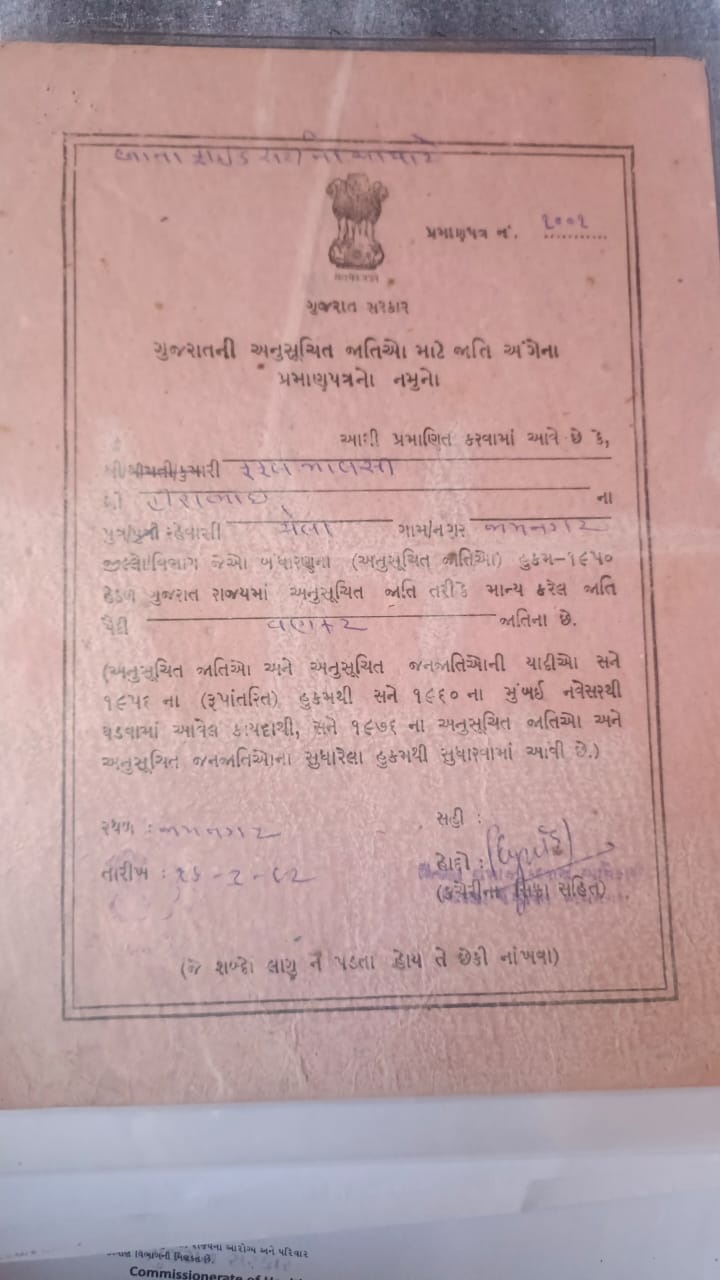 પ્રમાણપત્ર નં. ૨૦૦૨
ગુજરાત સરકાર
ગુજરાતની અનુસૂચિત જાતિઓ માટે જાતિ અંગેના
પ્રમાણપત્રનો નમુનો
આથી પ્રમાણિત કરવામાં આવે છે કે,
શ્રી/શ્રીમતી/કુમારી
ના
પુત્ર/પુત્રી રહેવાસી ગામ/નગર જામનગર
જીલ્લો/વિભાગ જેઓ બંધારણના (અનુસૂચિત જાતિઓ) હુકમ-૧૯૫૦
હેઠળ ગુજરાત રાજ્યમાં અનુસૂચિત જાતિ તરીકે માન્ય કરેલ જાતિ
પૈકી વણકર જાતિના છે.
(અનુસૂચિત જાતિઓ અને અનુસૂચિત જનજાતિઓની યાદીઓ સને
૧૯૫૬ ના (રૂપાંતરિત) હુકમથી સને ૧૯૬૦ ના મુંબઈ નવેસરથી
ઘડવામાં આવેલ કાયદાથી, સને ૧૯૭૬ ના અનુસૂચિત જાતિઓ અને
અનુસૂચિત જનજાતિઓના સુધારેલા હુકમથી સુધારવામાં આવી છે.)
સહી :
સ્થળ : જામનગર
હોદ્દો :
તારીખ :
(કચેરીના સિક્કા સહિત)
(જે શબ્દો લાગુ ન પડતા હોય તે છેકી નાંખવા)
રાજ્યના આરોગ્ય અને પરિવાર
વિભાગની મિલ્કત છે.
Commissionerate of